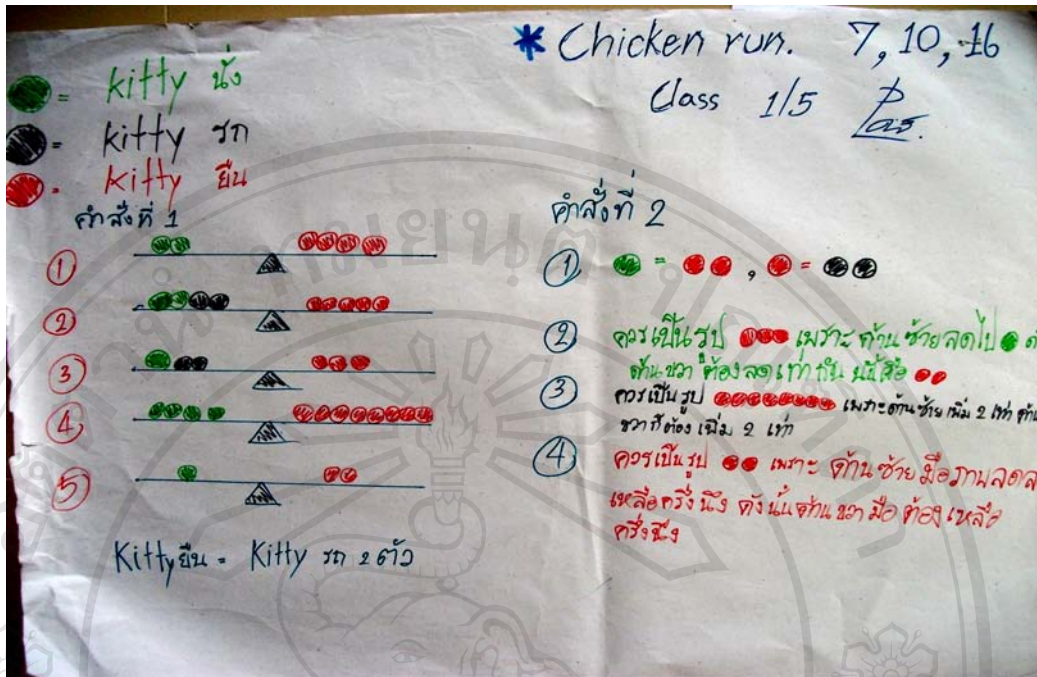 * Chicken run. 7, 10, 16
Class 1/5
= kitty นั่ง
= kitty รถ
= kitty ยืน
คำสั่งที่ 1
①
②
③
④
⑤
Kitty ยืน = Kitty รถ 2 ตัว
คำสั่งที่ 2
① = , =
② ควรเป็นรูป เพราะ ด้านซ้ายลดไป
ด้านขวา ก็ต้องลดเท่ากัน นั่นคือ
③ ควรเป็นรูป เพราะด้านซ้ายเพิ่ม 2 เท่า
ขวาก็ต้องเพิ่ม 2 เท่า
④ ควรเป็นรูป เพราะ ด้านซ้ายมือภาพลดล
เหลือครึ่งนึง ดังนั้นด้านขวามือต้องเหลือ
ครึ่งนึง